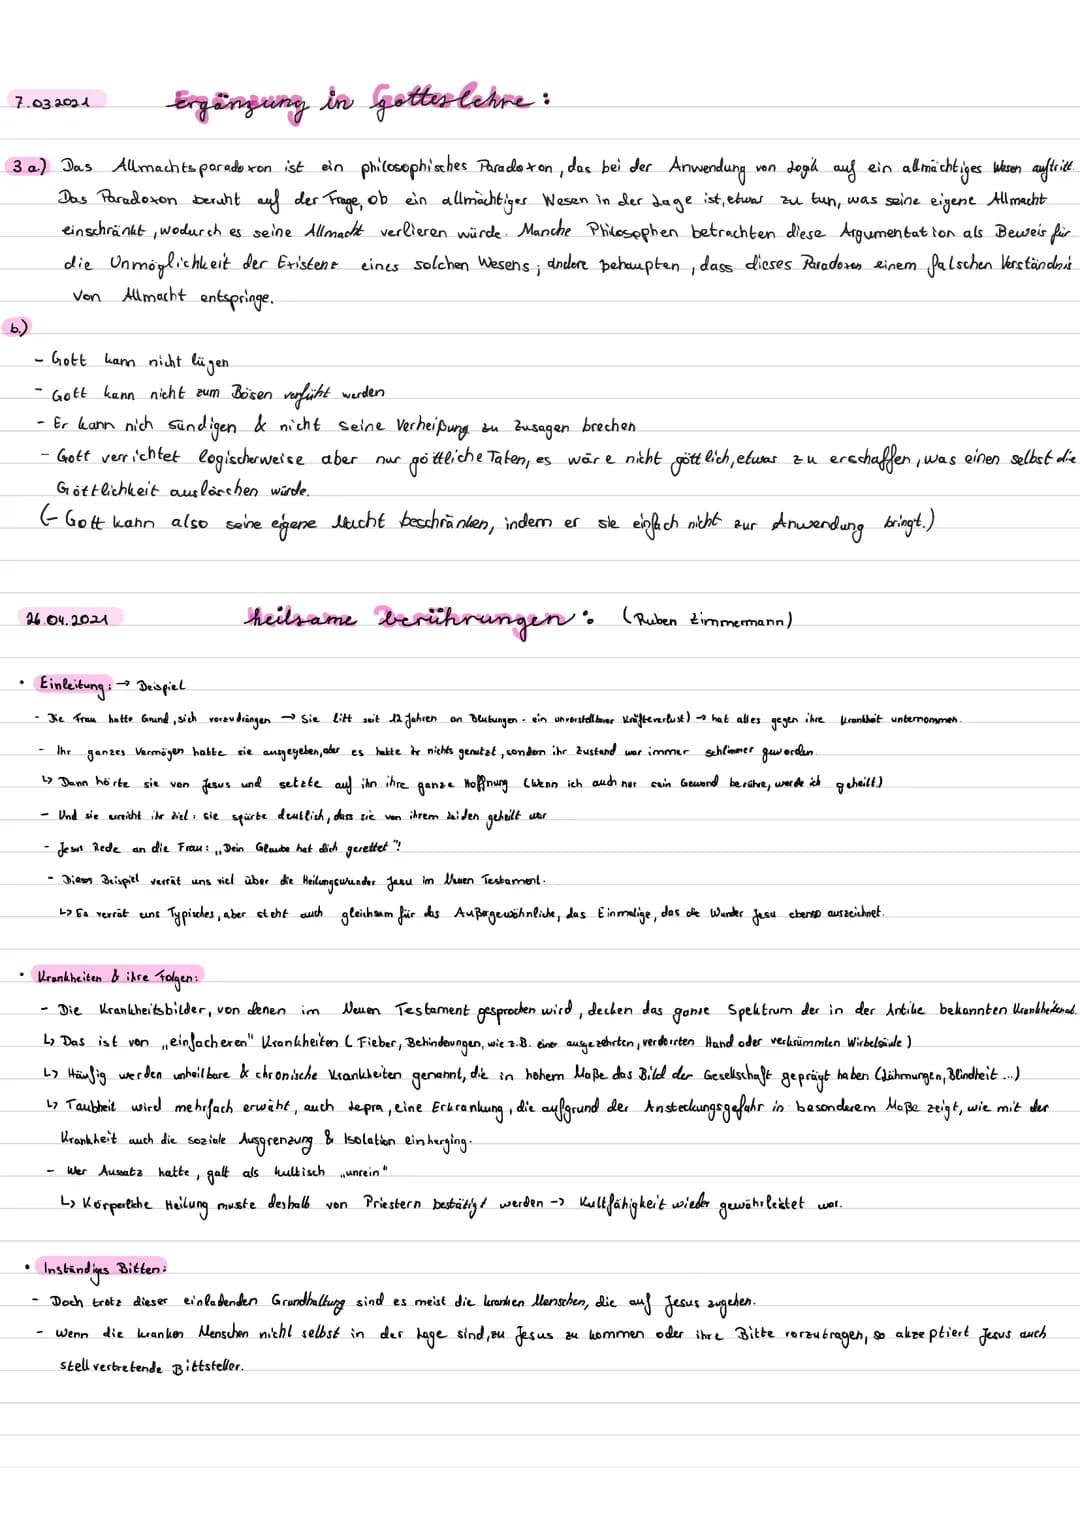 7.03.2021 Ergänzung in Gotteslehre:
3a.) Das Allmachtsparadoxon ist ein philosophisches Paradoxon, das bei der Anwendung von Logik auf ein allmächtiges Wesen auftritt.
Das Paradoxon beruht auf der Frage, ob ein allmächtiger Wesen in der Lage ist, etwas zu tun, was seine eigene Allmacht
einschränkt, wodurch es seine Allmacht verlieren würde. Manche Philosophen betrachten diese Argumentation als Beweis für
die Unmöglichkeit der Existenz eines solchen Wesens; andere behaupten, dass dieses Paradoxon einem falschen Verständnis
von Allmacht entspringe.
b.)
- Gott kann nicht lügen
- Gott kann nicht zum Bösen verführt werden
- Er kann nich sündigen & nicht seine Verheißung zu Zusagen brechen
- Gott verrichtet logischerweise aber nur göttliche Taten, es wäre nicht göttlich, etwas zu erschaffen, was einen selbst die
Göttlichkeit auslöschen würde.
(- Gott kann also seine eigene Macht beschränken, indem er sie einfach nicht zur Anwendung bringt.)
26.04.2021 heilsame berührungen: (Ruben Zimmermann)
• Einleitung: → Beispiel
- Die Frau hatte Grund, sich vorzudrängen → Sie litt seit 12 Jahren an Blutungen - ein unvorstellbarer Kräfteverlust) → hat alles gegen ihre Krankheit unternommen.
- Ihr ganzes Vermögen hatte sie ausgegeben, aber es hatte ihr nichts genutzt, sondern ihr Zustand war immer schlimmer geworden.
↳ Dann hörte sie von Jesus und setzte auf ihn ihre ganze Hoffnung (Wenn ich auch nur sein Gewand berühre, werde ich geheilt.)
- Und sie erreicht ihr Ziel: sie spürte deutlich, dass sie von ihrem Leiden geheilt war
- Jesus Rede an die Frau: „Dein Glaube hat dich gerettet"!
- Dieses Beispiel verrät uns viel über die Heilungswunder Jesu im Neuen Testament.
↳ Es verrät uns Typisches, aber steht auch gleichsam für das Außergewöhnliche, das Einmalige, das die Wunder Jesu ebenso auszeichnet.
• Krankheiten & ihre Folgen:
- Die Krankheitsbilder, von denen im Neuen Testament gesprochen wird, decken das ganze Spektrum der in der Antike bekannten Krankheiten ab.
↳ Das ist von „einfacheren" Krankheiten (Fieber, Behinderungen, wie z.B. einer ausgezehrten, verdorrten Hand oder verkrümmten Wirbelsäule)
↳ Häufig werden unheilbare & chronische Krankheiten genannt, die in hohem Maße das Bild der Gesellschaft geprägt haben (Lähmungen, Blindheit ...)
↳ Taubheit wird mehrfach erwäht, auch Lepra, eine Erkrankung, die aufgrund der Ansteckungsgefahr in besonderem Maße zeigt, wie mit der
Krankheit auch die soziale Ausgrenzung & Isolation einherging.
- Wer Aussatz hatte, galt als kultisch „unrein"
↳ Körperliche Heilung musste deshalb von Priestern bestätigt werden → Kultfähigkeit wieder gewährleistet war.
• Inständiges Bitten:
- Doch trotz dieser einladenden Grundhaltung sind es meist die kranken Menschen, die auf Jesus zugehen.
- Wenn die kranken Menschen nicht selbst in der Lage sind, zu Jesus zu kommen oder ihre Bitte vorzutragen, so akzeptiert Jesus auch
stellvertretende Bittsteller.